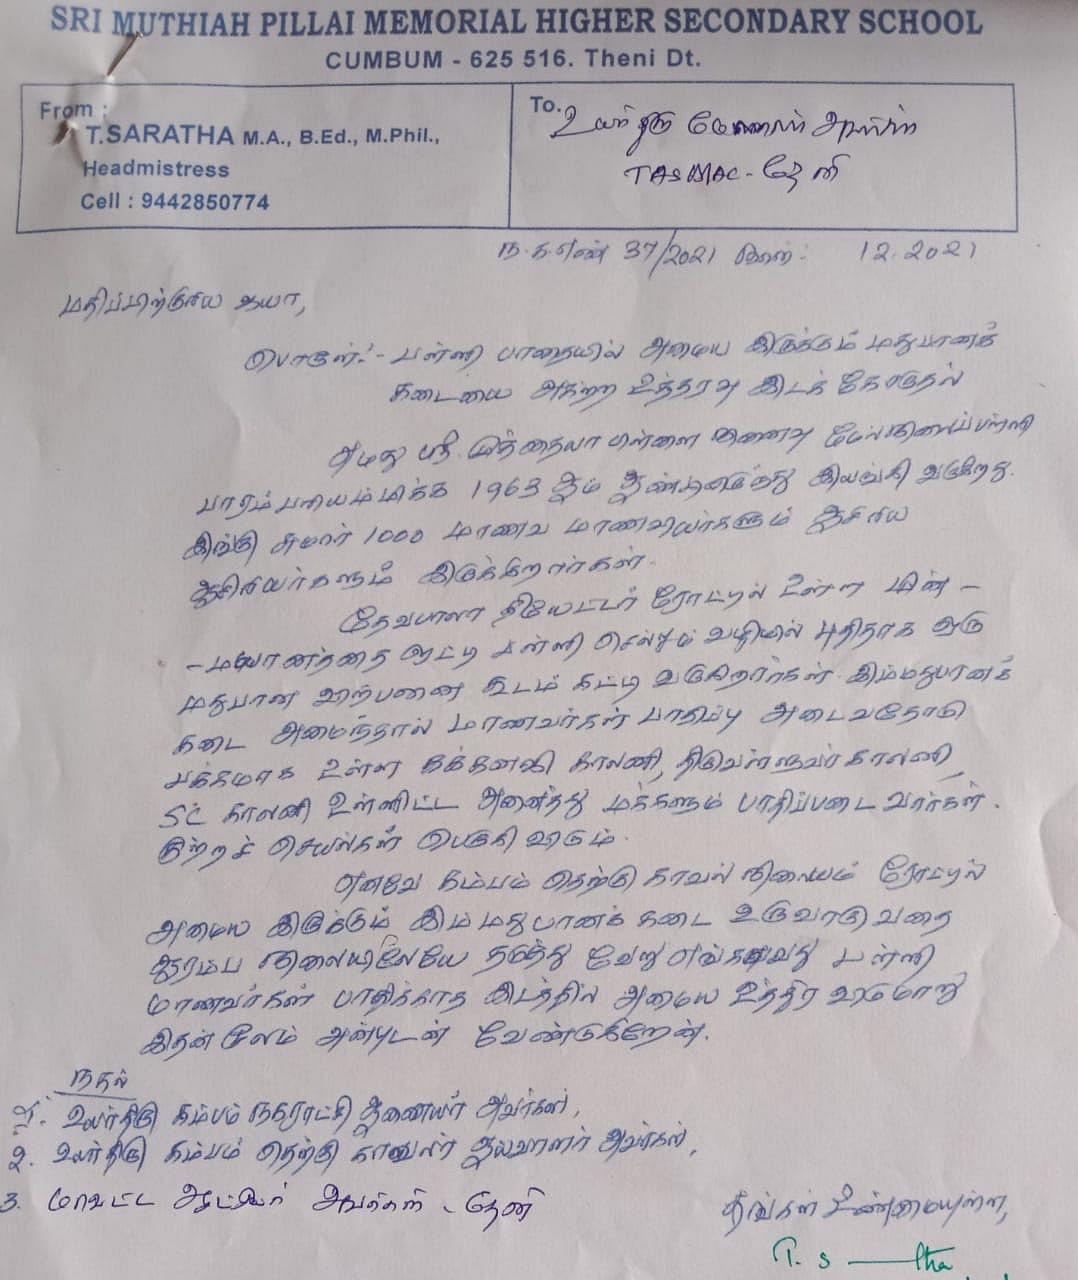 SRI MUTHIAH PILLAI MEMORIAL HIGHER SECONDARY SCHOOL
CUMBUM - 625 516. Theni Dt.
From :
T.SARATHA M.A., B.Ed., M.Phil.,
Headmistress
Cell : 9442850774
To.
உயர்திரு மேலாளர் அவர்கள்
TASMAC - தேனி
ந.க.எண் 37/2021 நாள்: 12.2021
மதிப்பிற்குரிய ஐயா,
பொருள்:- பள்ளி பாதையில் அமைய இருக்கும் மதுபானக்
கடையை அகற்ற உத்தரவு இடக் கோருதல்
எமது ஸ்ரீ முத்தையா பிள்ளை நினைவு மேல்நிலைப்பள்ளி
பாரம்பரியம்மிக்க 1963 ஆம் ஆண்டிலிருந்து இயங்கி வருகிறது.
இங்கு சுமார் 1000 மாணவ மாணவியர்களும் ஆசிரிய
ஆசிரியர்களும் இருக்கிறார்கள்.
தேவபாலா தியேட்டர் ரோட்டில் உள்ள மின் -
- மயானத்தை ஒட்டி பள்ளி செல்லும் வழியில் புதிதாக ஒரு
மதுபான விற்பனை கூடம் கட்டி வருகிறார்கள். இம்மதுபானக்
கடை அமைந்தால் மாணவர்கள் பாதிப்பு அடைவதோடு
பக்கமாக உள்ள காலனி, திருவள்ளுவர் காலனி,
SC காலனி உள்ளிட்ட அனைத்து மக்களும் பாதிப்படைவார்கள்.
குற்றச் செயல்கள் பெருகி விடும்.
எனவே கம்பம் தெற்கு காவல் நிலையம் ரோட்டில்
அமைய இருக்கும் இம்மதுபானக் கடை உருவாகுவதை
ஆரம்ப நிலையிலேயே தடுத்து வேறு எங்காவது பள்ளி
மாணவர்கள் பாதிக்காத இடத்தில் அமைய உத்திரவிடுமாறு
இதன் மூலம் அன்புடன் வேண்டுகிறேன்.
நகல்
1. உயர்திரு கம்பம் நகராட்சி ஆணையர் அவர்கள்,
2. உயர்திரு கம்பம் தெற்கு காவலர் ஆய்வாளர் அவர்கள்,
3. மாவட்ட ஆட்சியர் அவர்கள் - தேனி
தங்கள் உண்மையுள்ள,